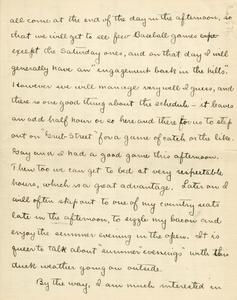 all come at the end of the day in the afternoon, so
that we will get to see few Baseball games
except the Saturday ones, and on that day I will
generally have an "engagement back in the hills."
However we will manage very well I guess, and
there is one good thing about the schedule - it leaves
an odd half hour or so here and there for us to step
out on "Quil-Street" for a game of catch or the like.
Guy and I had a good game this afternoon.
Then too we can get to bed at very respectable
hours, which is a great advantage. Later on I
will often skip out to one of my country seats
late in the afternoon, to sizzle my bacon and
enjoy the summer evening in the open. It is
queer to talk about "summer evenings" with this
dark weather going on outside.
By the way, I am much interested in